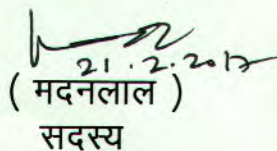 21.2.2017
( मदनलाल )
सदस्य